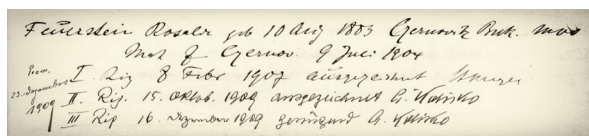 Feuerstein Rosalie geb 10 Aug 1883 Czernowitz Buk. mos
Mat G Czernow. 9 Juli 1904
Prom.
23. Dezember
1909
I. Rig 8 Febr 1907 ausgezeichnet
II. Rig. 15. Oktob. 1909 ausgezeichnet
III Rig 16. Dezember 1909 genügend